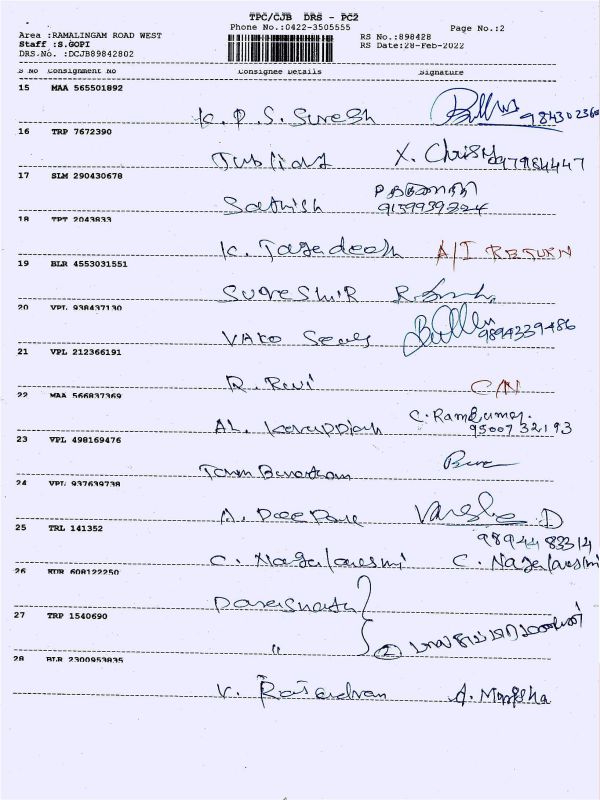 TPC/CJB DRS - PC2
Phone No.:0422-3505555 Page No.:2
Area :RAMALINGAM ROAD WEST
Staff :S.GOPI
DRS.No. :DCJB89842802
RS No.:898428
RS Date:28-Feb-2022
S No Consignment No Consignee Details Signature
15 MAA 565501892
K.P.S. Suresh
16 TRP 7672390
X. Chrisy
17 SLM 290430678
Sathish 9159939224
18 TPT 2043833
K. Jagadeesh A/I RETURN
19 BLR 4553031551
20 VPL 938437130
VAKO Seals 9894339486
21 VPL 212366191
R. Ravi C/N
22 MAA 566837369
AL. Karuppiah C. Ramkumar.
95007 32193
23 VPL 498169476
24 VPL 937639738
A. Deepak Varsha D
98944 83314
25 TRL 141352
C. Nagalakshmi C. Nagalakshmi
26 KUR 608122250
Parasnath
27 TRP 1540690
"
②
28 BLR 2300953835
V. Rajendran A.